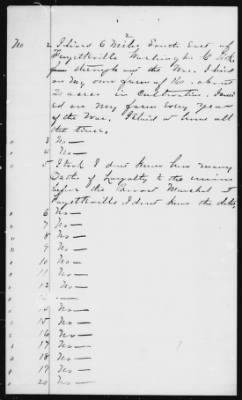 2
No 2 I lived 6 Miles South East of
Fayetteville Washington Co Ark
through out the War. I lived
on my own farm of 160 about
20 acres in Cultivation. I
on my farm every year
of the War. I lived at home all
the time.
3 No —
4 No —
5 I took I dont know how many
Oaths of Loyalty to the union
before the Provost Marshal at
Fayetteville I dont know the date
6 No —
7 No —
8 No —
9 No —
10 No —
11 No —
12 No —
14 No —
15 No —
16 No —
17 No —
18 No —
19 No —
20 No —